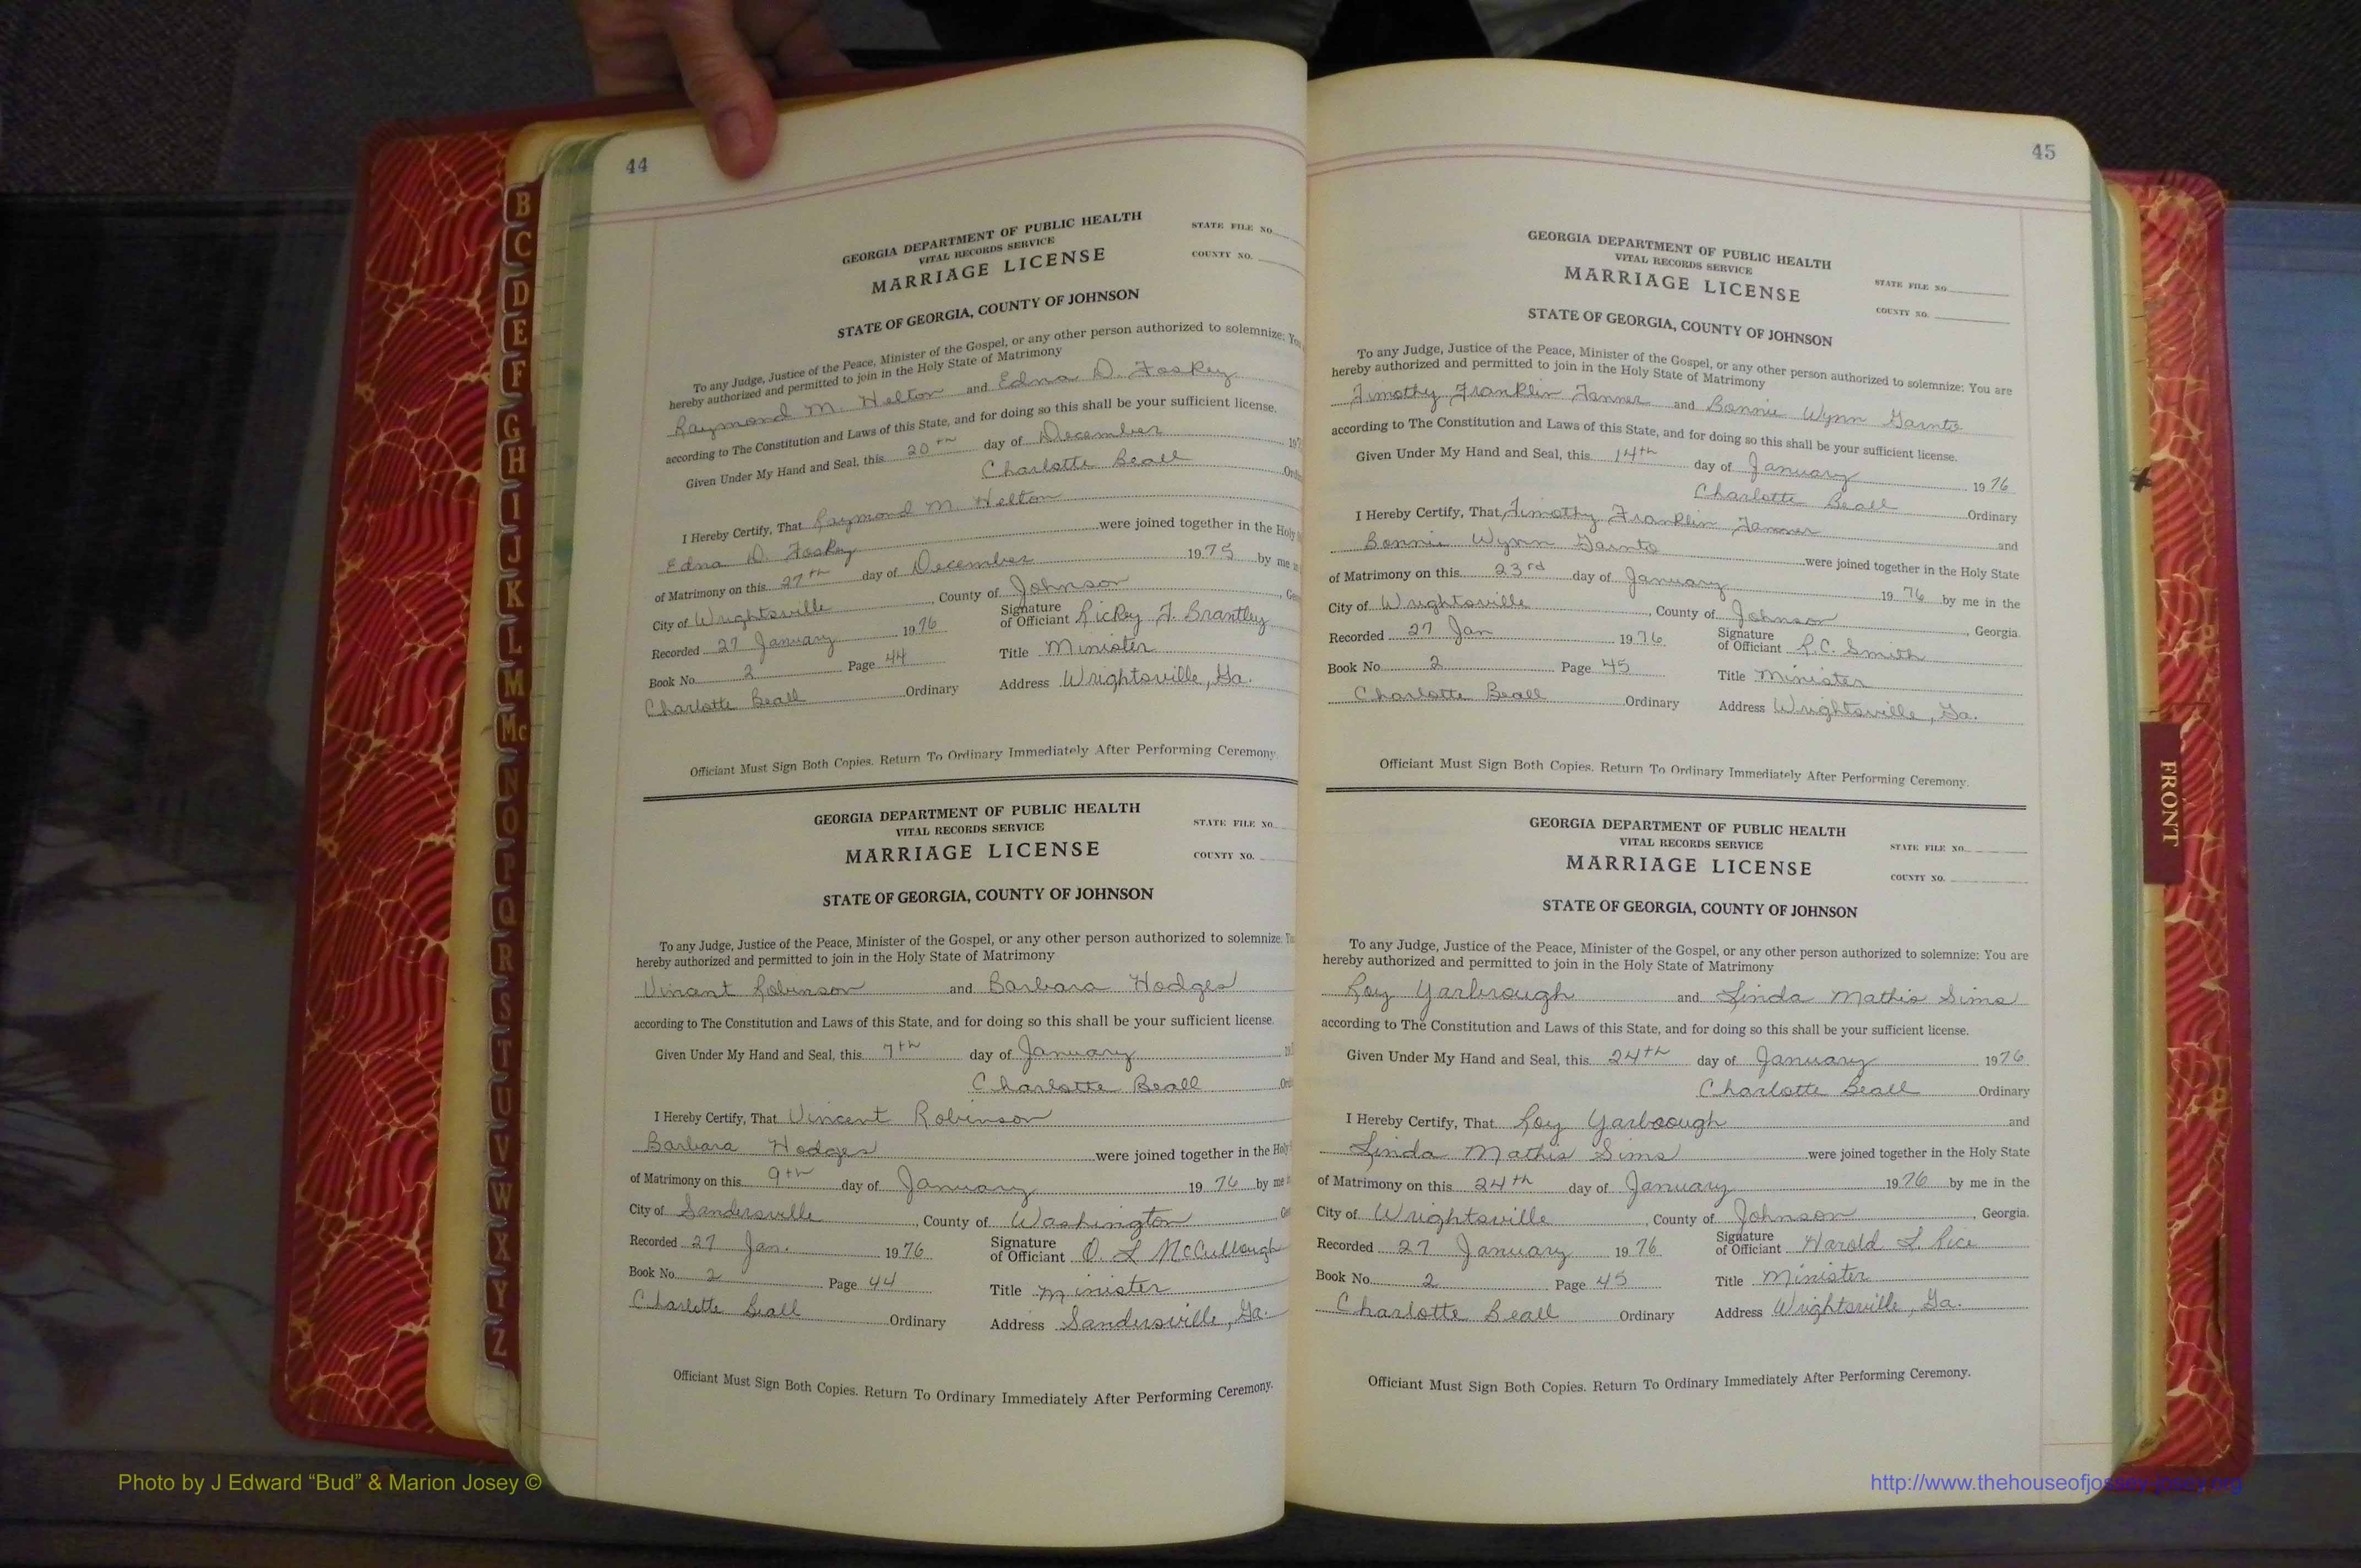 44
GEORGIA DEPARTMENT OF PUBLIC HEALTH
VITAL RECORDS SERVICE
MARRIAGE LICENSE
STATE FILE NO.
COUNTY NO.
STATE OF GEORGIA, COUNTY OF JOHNSON
To any Judge, Justice of the Peace, Minister of the Gospel, or any other person authorized to solemnize: You
hereby authorized and permitted to join in the Holy State of Matrimony
Raymond M. Helton and Edna D. Foskey
according to The Constitution and Laws of this State, and for doing so this shall be your sufficient license.
Given Under My Hand and Seal, this 20th day of December 197
Charlotte Beall Ord
I Hereby Certify, That Raymond M. Helton
Edna D. Foskey were joined together in the Holy
of Matrimony on this 27th day of December 1975 by me
City of Wrightsville, County of Johnson
Recorded 27 January 1976 Signature of Officiant Rickey F. Brantley
Book No. 2 Page 44 Title Minister
Charlotte Beall Ordinary Address Wrightsville, Ga.
Officiant Must Sign Both Copies. Return To Ordinary Immediately After Performing Ceremony.
GEORGIA DEPARTMENT OF PUBLIC HEALTH
VITAL RECORDS SERVICE
MARRIAGE LICENSE
STATE FILE NO.
COUNTY NO.
STATE OF GEORGIA, COUNTY OF JOHNSON
To any Judge, Justice of the Peace, Minister of the Gospel, or any other person authorized to solemnize:
hereby authorized and permitted to join in the Holy State of Matrimony
Vincent Robinson and Barbara Hodges
according to The Constitution and Laws of this State, and for doing so this shall be your sufficient license.
Given Under My Hand and Seal, this 7th day of January
Charlotte Beall Ord
I Hereby Certify, That Vincent Robinson
Barbara Hodges were joined together in the Holy
of Matrimony on this 9th day of January 1976 by me
City of Sandersville, County of Washington
Recorded 27 Jan. 1976 Signature of Officiant O. L McCullough
Book No. 2 Page 44 Title Minister
Charlotte Beall Ordinary Address Sandersville, Ga.
Officiant Must Sign Both Copies. Return To Ordinary Immediately After Performing Ceremony.
45
GEORGIA DEPARTMENT OF PUBLIC HEALTH
VITAL RECORDS SERVICE
MARRIAGE LICENSE
STATE FILE NO.
COUNTY NO.
STATE OF GEORGIA, COUNTY OF JOHNSON
To any Judge, Justice of the Peace, Minister of the Gospel, or any other person authorized to solemnize: You are
hereby authorized and permitted to join in the Holy State of Matrimony
Timothy Franklin Tanner and Bonnie Wynn Gainto
according to The Constitution and Laws of this State, and for doing so this shall be your sufficient license.
Given Under My Hand and Seal, this 14th day of January 1976
Charlotte Beall Ordinary
I Hereby Certify, That Timothy Franklin Tanner and
Bonnie Wynn Gainto were joined together in the Holy State
of Matrimony on this 23rd day of January 1976 by me in the
City of Wrightsville, County of Johnson, Georgia.
Recorded 27 Jan 1976 Signature of Officiant R.C. Smith
Book No. 2 Page 45 Title Minister
Charlotte Beall Ordinary Address Wrightsville, Ga.
Officiant Must Sign Both Copies. Return To Ordinary Immediately After Performing Ceremony.
GEORGIA DEPARTMENT OF PUBLIC HEALTH
VITAL RECORDS SERVICE
MARRIAGE LICENSE
STATE FILE NO.
COUNTY NO.
STATE OF GEORGIA, COUNTY OF JOHNSON
To any Judge, Justice of the Peace, Minister of the Gospel, or any other person authorized to solemnize: You are
hereby authorized and permitted to join in the Holy State of Matrimony
Roy Yarbrough and Linda Mathis Sims
according to The Constitution and Laws of this State, and for doing so this shall be your sufficient license.
Given Under My Hand and Seal, this 24th day of January 1976
Charlotte Beall Ordinary
I Hereby Certify, That Roy Yarbrough and
Linda Mathis Sims were joined together in the Holy State
of Matrimony on this 24th day of January 1976 by me in the
City of Wrightsville, County of Johnson, Georgia.
Recorded 27 January 1976 Signature of Officiant Harold L. Rice
Book No. 2 Page 45 Title Minister
Charlotte Beall Ordinary Address Wrightsville, Ga.
Officiant Must Sign Both Copies. Return To Ordinary Immediately After Performing Ceremony.
B
C
D
E
F
G
H
I
J
K
L
M
Mc
N
O
P
Q
R
S
T
U
V
W
X
Y
Z
FRONT
Photo by J Edward “Bud” & Marion Josey ©
http://www.thehouseofjossey-josey.org